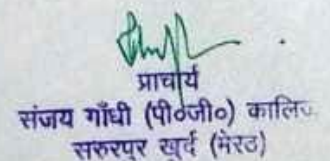 प्राचार्य
संजय गाँधी (पी०जी०) कालिज
सरुरपुर खुर्द (मेरठ)